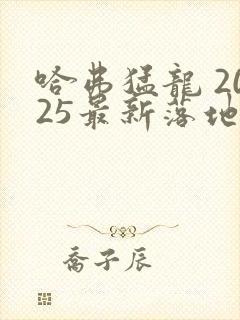 哈弗猛龍 20
25最新落地
喬子辰